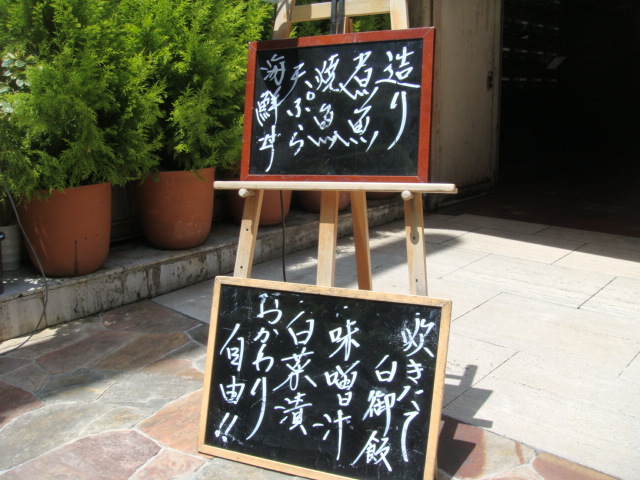 造り
煮魚
焼魚
天ぷら
海鮮丼
炊きたて
白御飯
味噌汁
白菜漬
おかわり
自由!!